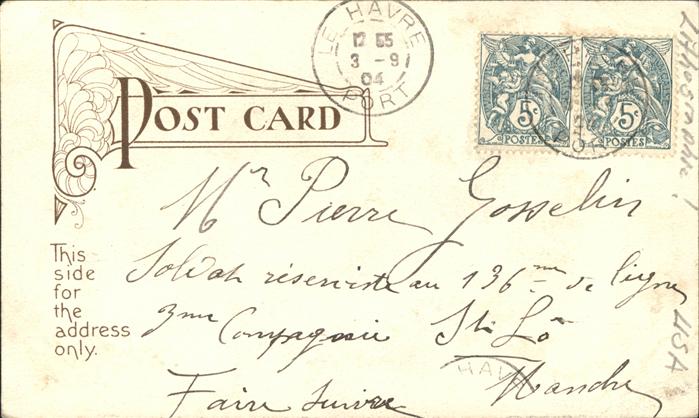 LE HAVRE
12 55
3 - 9
04
PORT
5c 5c
POSTES POSTES
POST CARD
This
side
for
the
address
only.
Mr Pierre Gosselin
Soldat réserviste au 136me de ligne
3me Compagnie St Lô
HAV
Manche
Faire suivre
USA